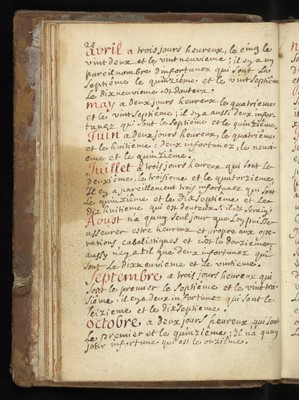 28
avril a trois jours heureux, le cinq le
vint deux et le vint neuvieme; il en a un
pareil nombre d'infortunez qui sont Le
septiême le quinzieme et le vint septieme
Le dix neuvieme est douteux.
may a deux jours heureux le quatrieme
et le vint septieme; il y a aussi deux infor-
tunez qui sont le septieme et le quinzieme.
Juin a deux jours heureux, le quatrieme
et le huitieme; deux infortunez, le neuvi-
eme et le quinzieme.
Juillet a trois jours heureux qui sont le
deuxiême, le troisieme et le quatorzieme,
Il en a pareillement trois infortunez qui sont
Le quinzieme et le dix septieme, et Le
dix huitieme qui est douteux
Aoust n'a qu'un seul jour que L'on puisse
assurer estre heureux et propre aux ope-
rations cabalistiques et c'est le douzieme,
aussy n'en a t'il que deux infortunez qui
sont Le dix neuvieme et le vintieme.
Septembre a trois jours heureux qui
sont le premier le septieme et le vint troi-
sieme, il en a deux infortunez qui sont le
seizieme et le dix septieme.
Octobre a deux jours heureux qui sont
Le premier et le quinzieme; Il n'a qu'un
jour infortuné qui est le onzieme.